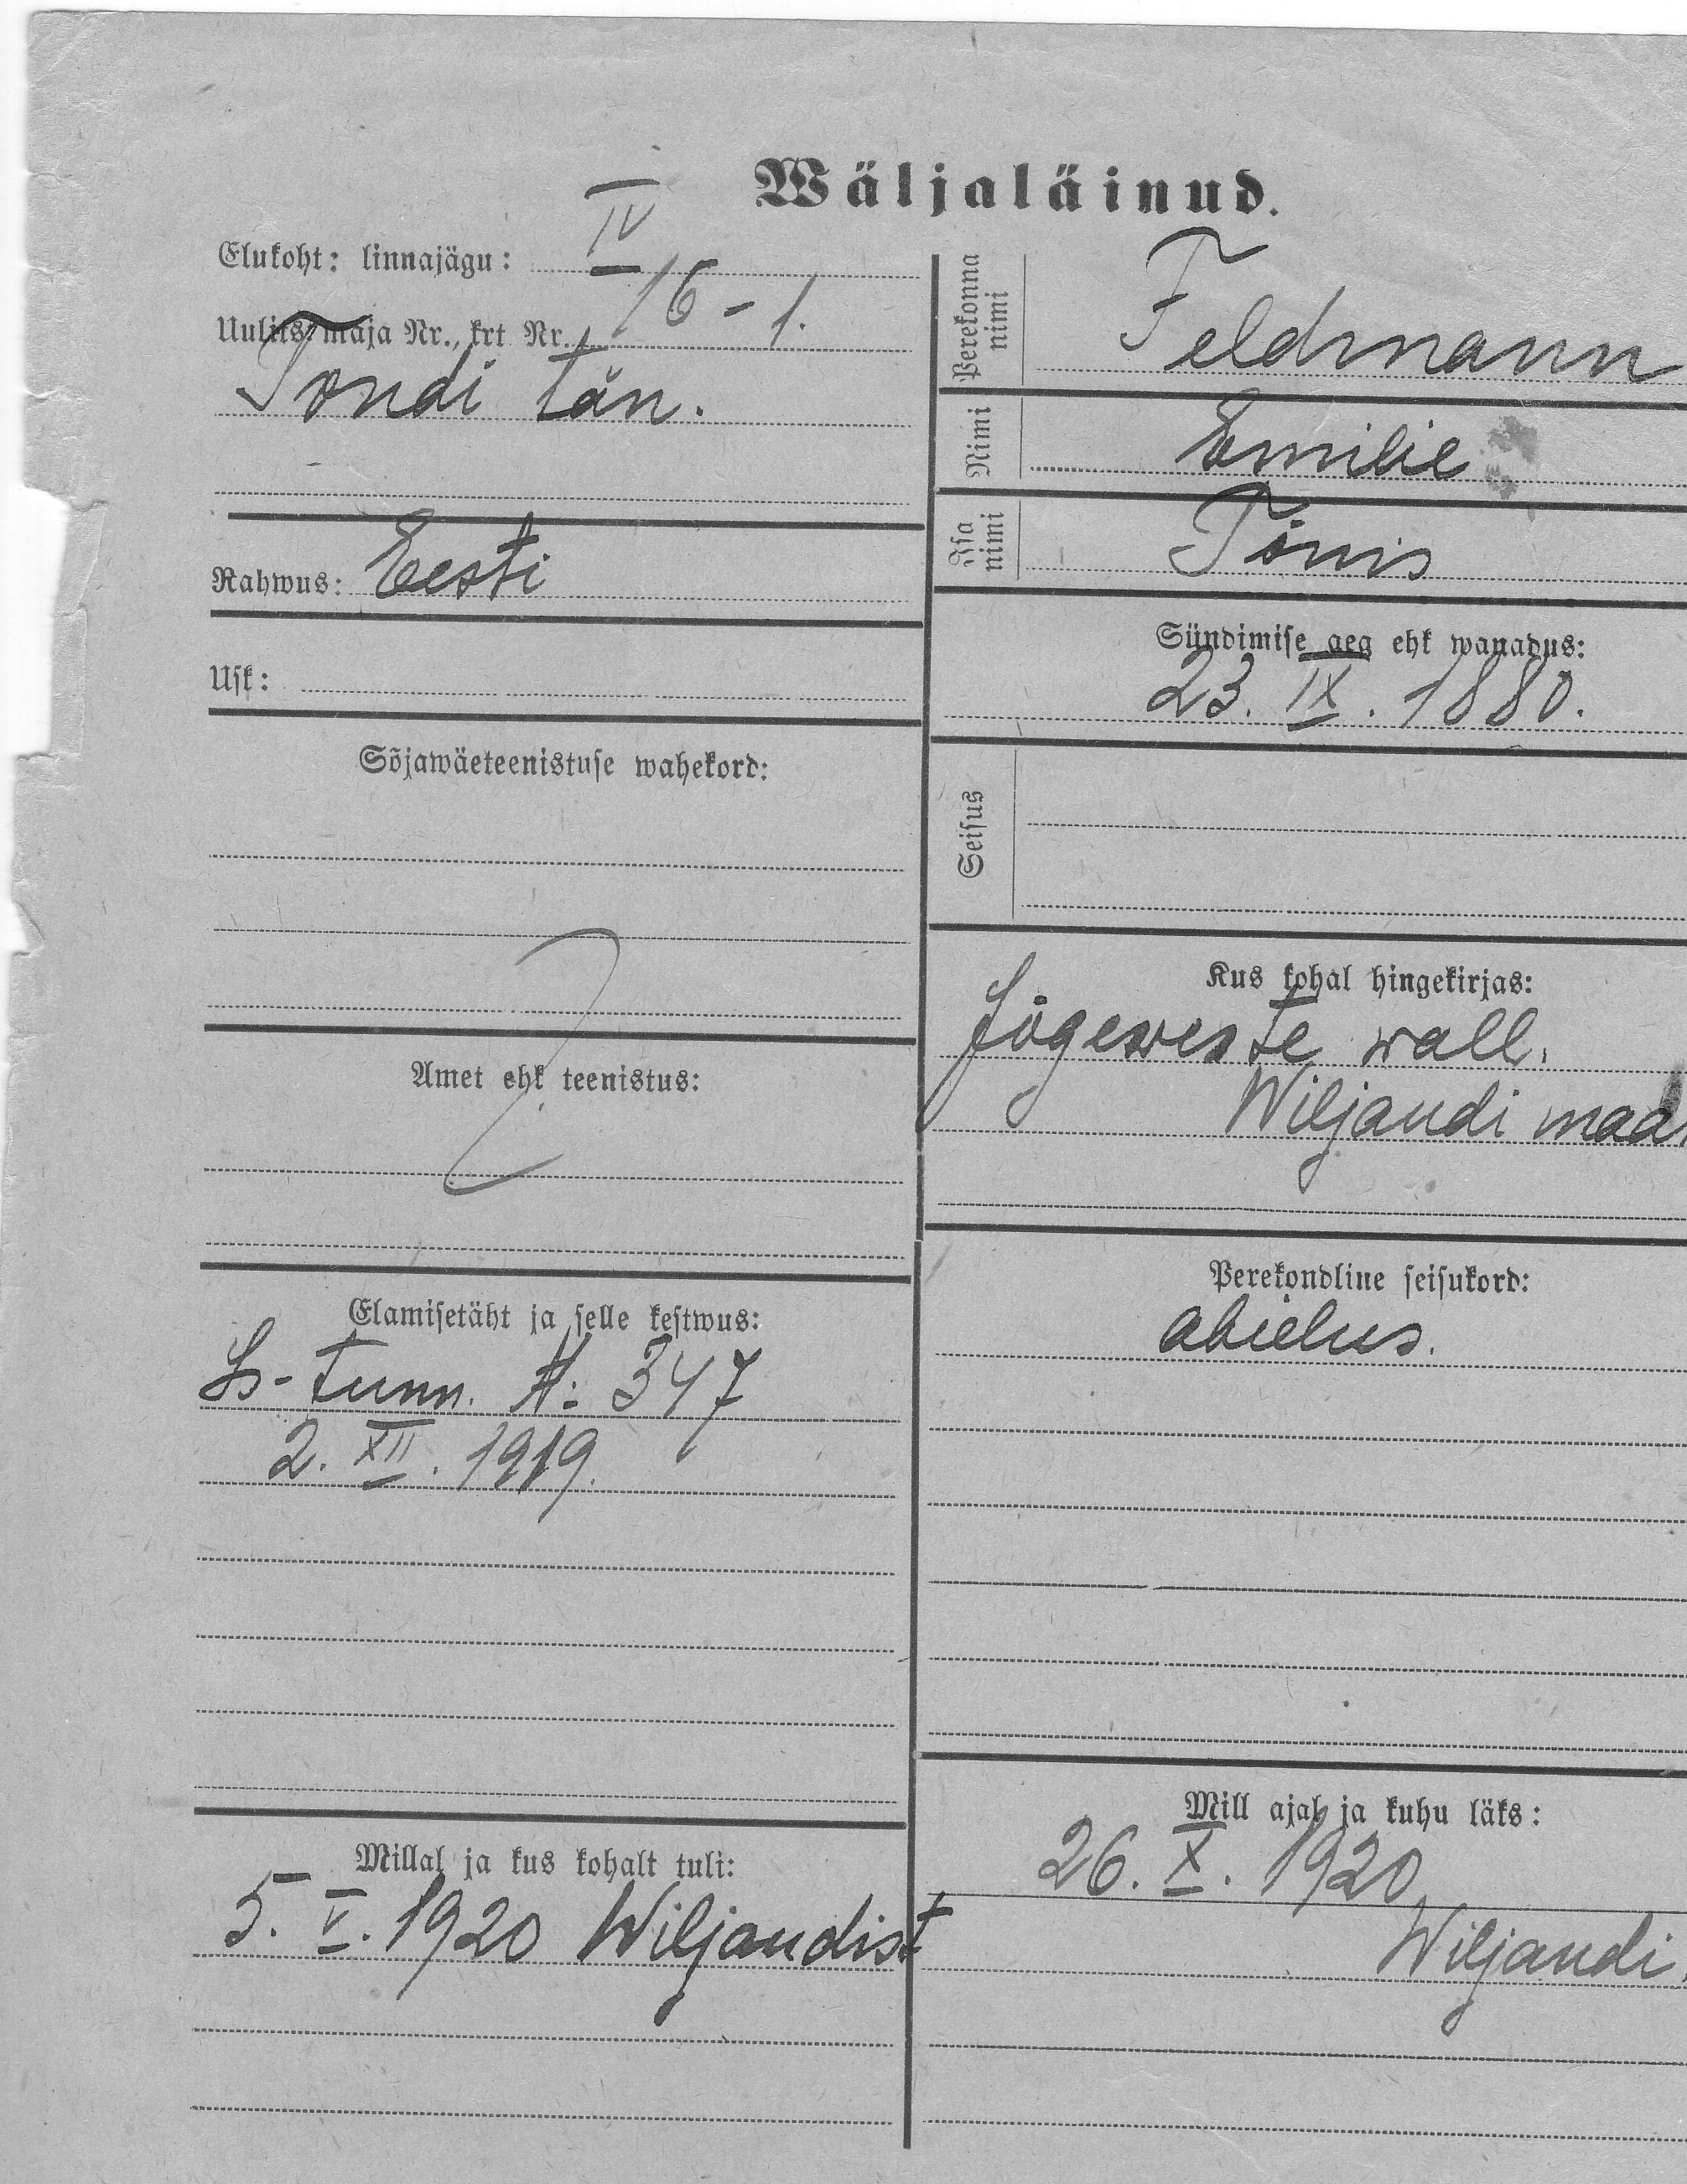 Wäljaläinud.
Elukoht: linnajägu: IV
Uulits, maja Nr., krt Nr. 16 - 1.
Tondi tän.
Rahwus: Eesti
Usk:
Sõjawäeteenistuse wahekord:
Amet ehk teenistus:
Elamisetäht ja selle kestwus:
Is-tunn. №: 347
2. XII. 1919.
Millal ja kus kohalt tuli:
5. V. 1920 Wiljandist
Perekonna
nimi
Feldmann
Nimi Emilie
Isa
nimi
Tõnis
Sündimise aeg ehk wanadus:
23. IX. 1880.
Seisus
Kus kohal hingekirjas:
Jõgeweste wall.
Wiljandi maa
Perekondline seisukord:
abielus.
Mill ajal ja kuhu läks:
26. X. 1920
Wiljandi.